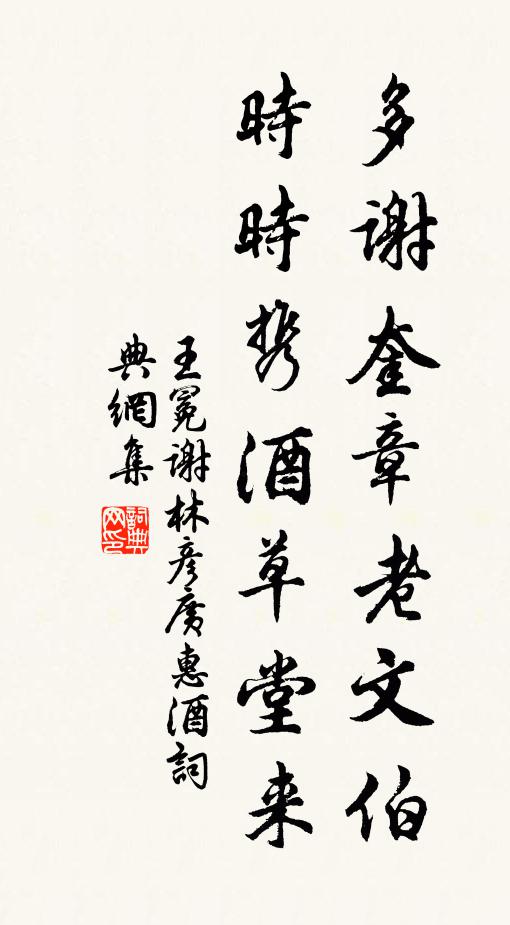 多谢奎章老文伯
時時携酒草堂来
王冕谢林彦廣惠酒詞
典網集
詞典
网印